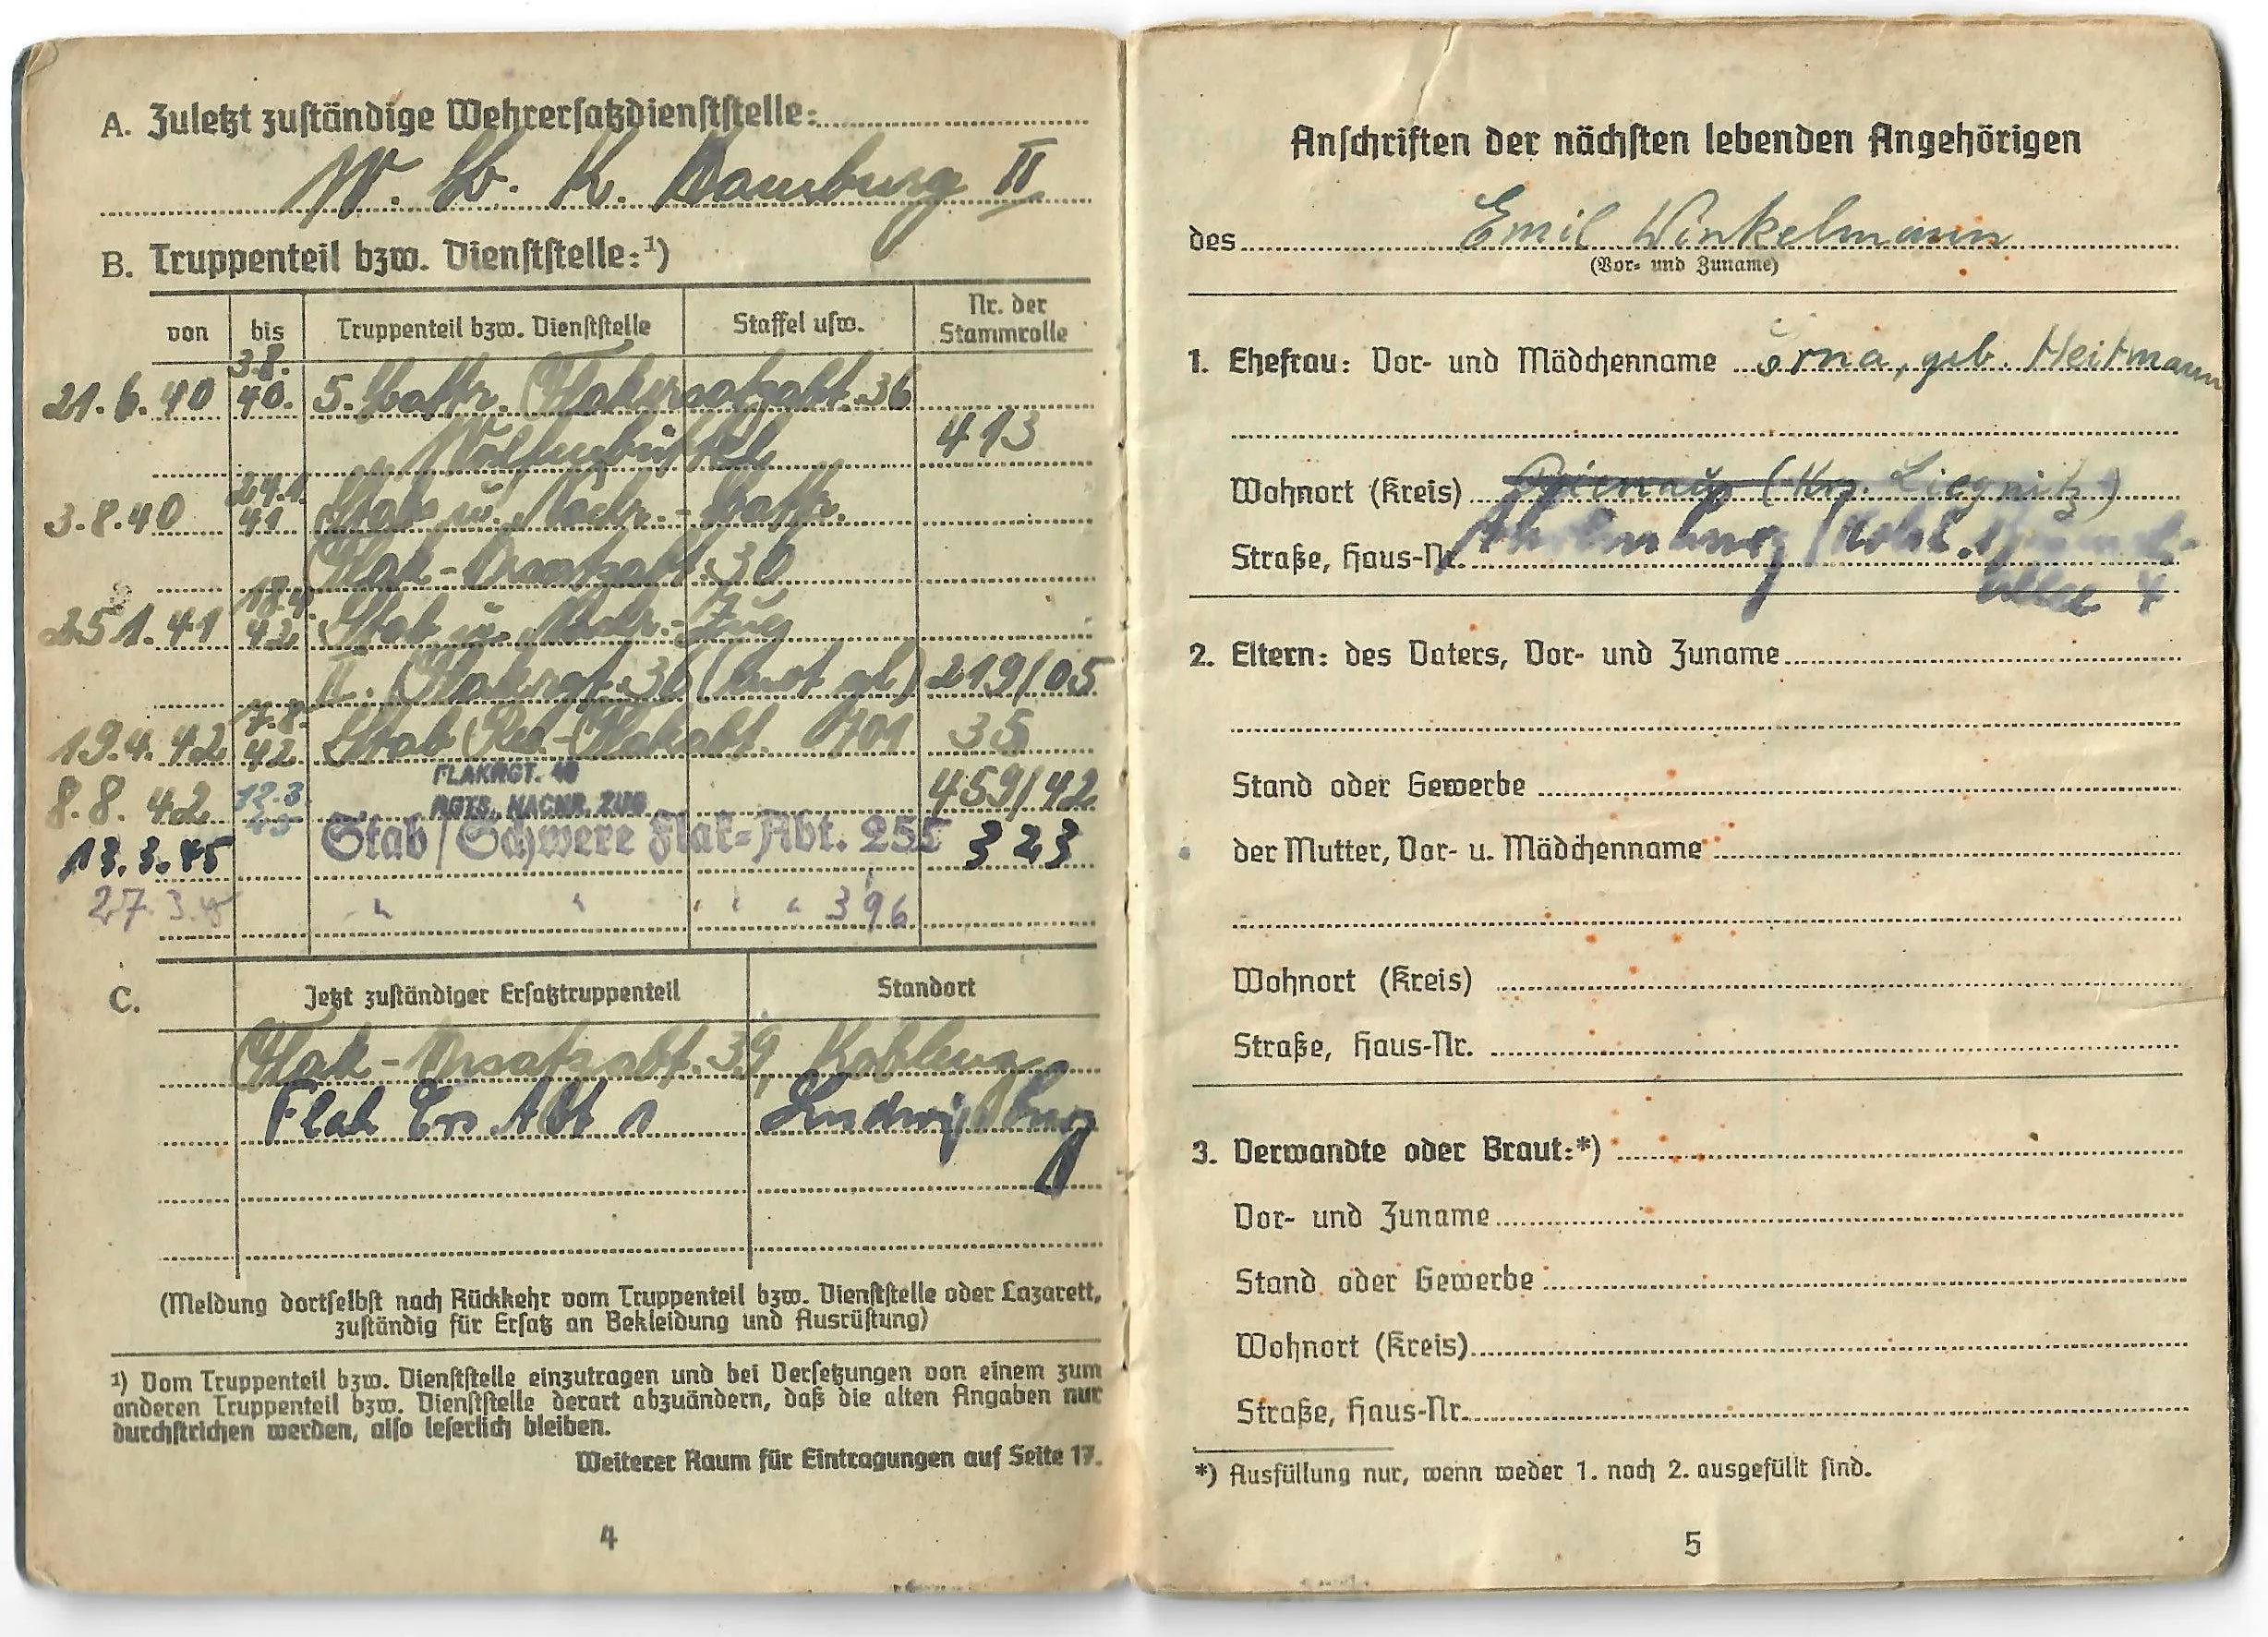 A. Zuletzt zuständige Wehrersatzdienststelle:
W. B. K. Hamburg II
B. Truppenteil bzw. Dienststelle:¹)
von bis Truppenteil bzw. Dienststelle Staffel usw. Nr. der Stammrolle
21.6.40 3.8.40. 5. Battr. Flakersatzabt. 36
Wolfenbüttel 413
3.8.40 24.1.41 Stabs u. Nachr.-Battr.
Flak-Ersatzabt. 36
25.1.41 18.4.42 Stab u. Nachr.-Zug
II. Flakrgt. 36 (mot gl) 219/05
19.4.42 7.8.42 Stab Res.-Flakabt. 701 35
8.8.42 12.3.45 FLAKRGT. 49 459/42
RGTS. NACHR. ZUG
13.3.45 Stab/Schwere Flak-Abt. 255 323
27.3.45 " " " " " 396
C. Jetzt zuständiger Ersatztruppenteil Standort
Flak-Ersatzabt. 39, Koblenz
Flak Ers Abt 1 Ludwigsburg
(Meldung dortselbst nach Rückkehr vom Truppenteil bzw. Dienststelle oder Lazarett,
zuständig für Ersatz an Bekleidung und Ausrüstung)
¹) Vom Truppenteil bzw. Dienststelle einzutragen und bei Versetzungen von einem zum
anderen Truppenteil bzw. Dienststelle derart abzuändern, daß die alten Angaben nur
durchstrichen werden, also leserlich bleiben.
Weiterer Raum für Eintragungen auf Seite 17.
4
Anschriften der nächsten lebenden Angehörigen
des Emil Winkelmann
(Vor- und Zuname)
1. Ehefrau: Vor- und Mädchenname Erna, geb. Heitmann
Wohnort (Kreis) (Krs. Liegnitz)
Straße, Haus-Nr. Ahrensburg / Holst.
4
2. Eltern: des Vaters, Vor- und Zuname
Stand oder Gewerbe
der Mutter, Vor- u. Mädchenname
Wohnort (Kreis)
Straße, Haus-Nr.
3. Verwandte oder Braut:*)
Vor- und Zuname
Stand oder Gewerbe
Wohnort (Kreis)
Straße, Haus-Nr.
*) Ausfüllung nur, wenn weder 1. noch 2. ausgefüllt sind.
5